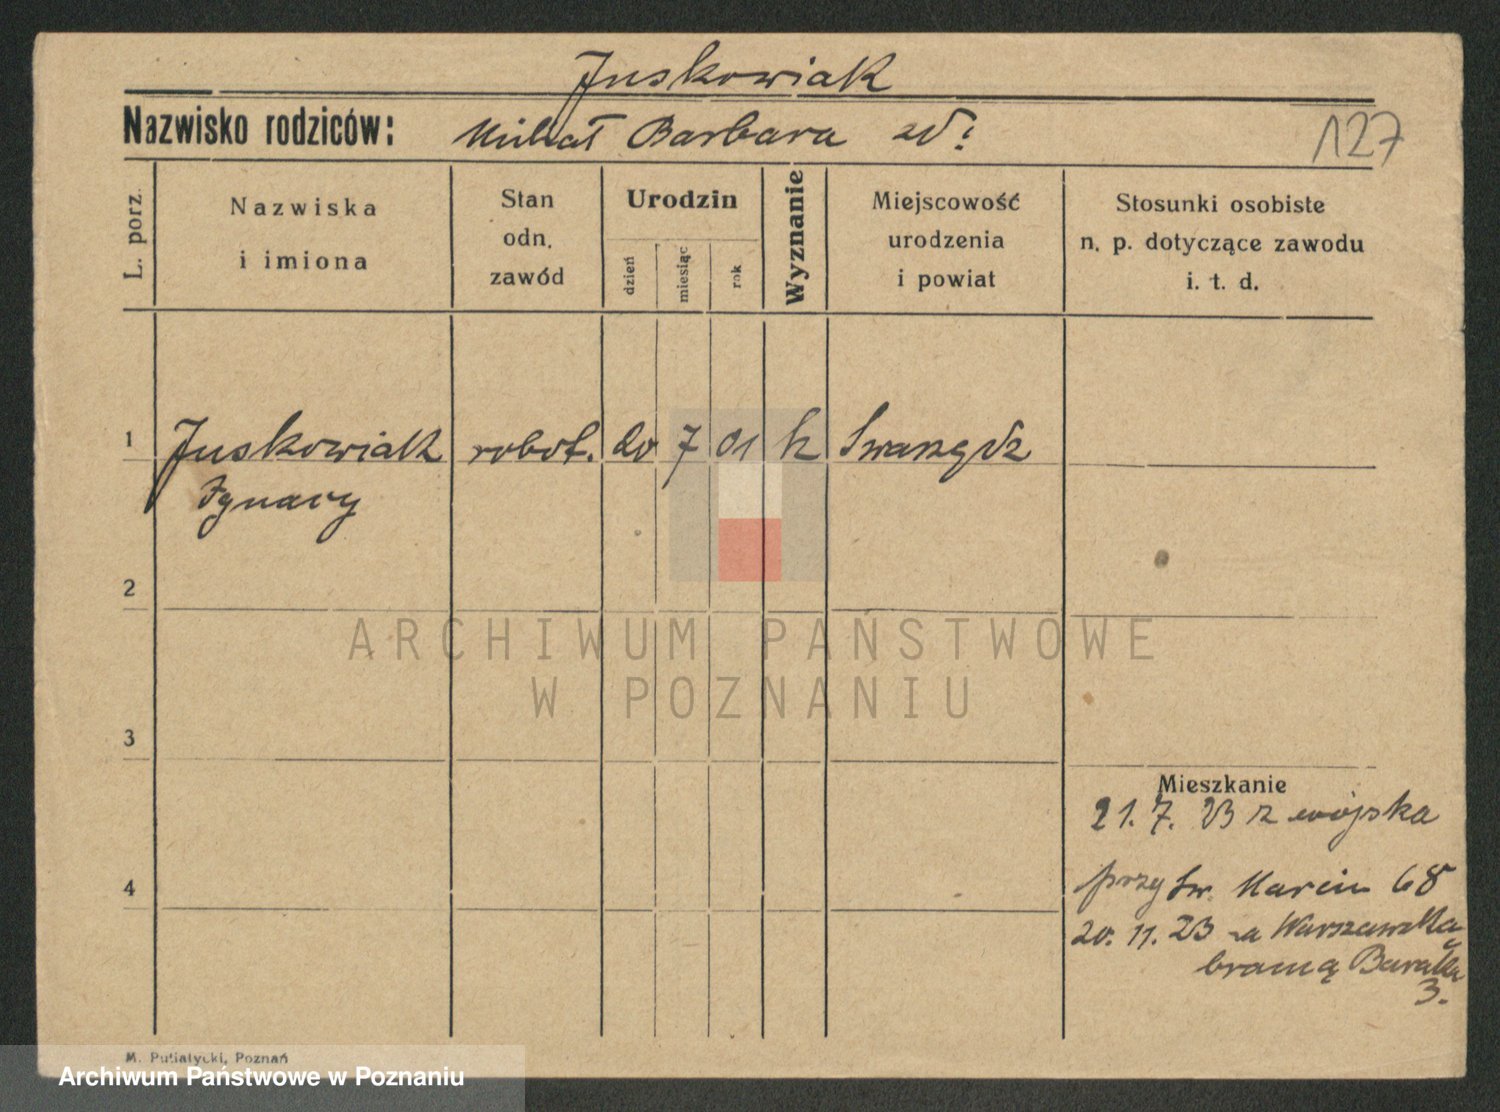 Juskowiak
Nazwisko rodziców: Michał Barbara zd:
127
L. porz.
Nazwiska
i imiona
Stan
odn.
zawód
Urodzin
dzień
miesiąc
rok
Wyznanie
Miejscowość
urodzenia
i powiat
Stosunki osobiste
n. p. dotyczące zawodu
i. t. d.
1 Juskowiak robot. 20 7 01 k Swarzędz
Ignacy
2
3
4
ARCHIWUM PAŃSTWOWE
W POZNANIU
Mieszkanie
21. 7. 23 z wojska
przy Św. Marcin 68
20. 11. 23 za Warszawską
bramą Barak
3.
M. Putiatycki, Poznań
Archiwum Państwowe w Poznaniu